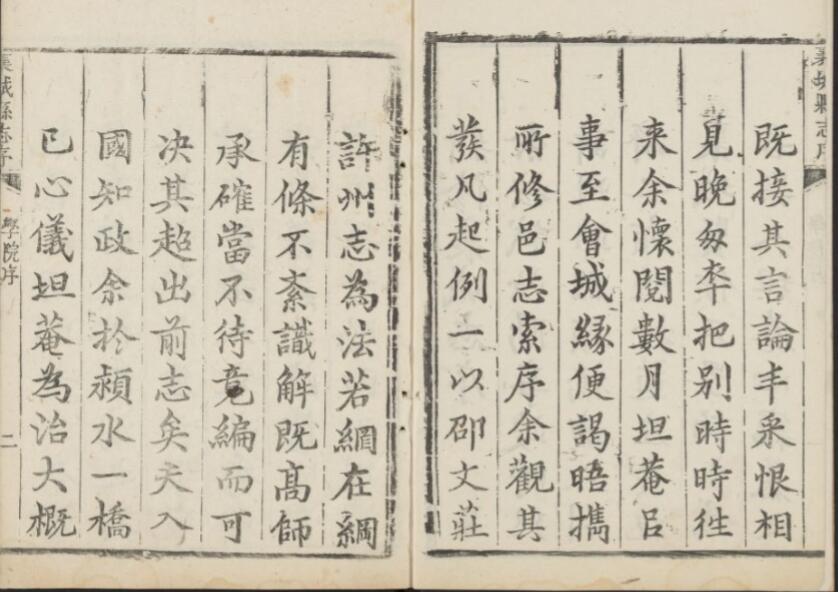 襄城縣志序
既接其言論丰采恨相
見晚匆卒把别時時徃
来余懷閱數月坦菴㠯
事至會城緣便謁晤攜
所修邑志索序余觀其
發凡起例一以邵文莊
許州志為法若網在綱
有條不紊識解既高師
承確當不待竟編而可
决其超出前志矣夫入
國知政余扵潁水一橋
已心儀坦菴為治大概
襄城縣志序
學院序
二